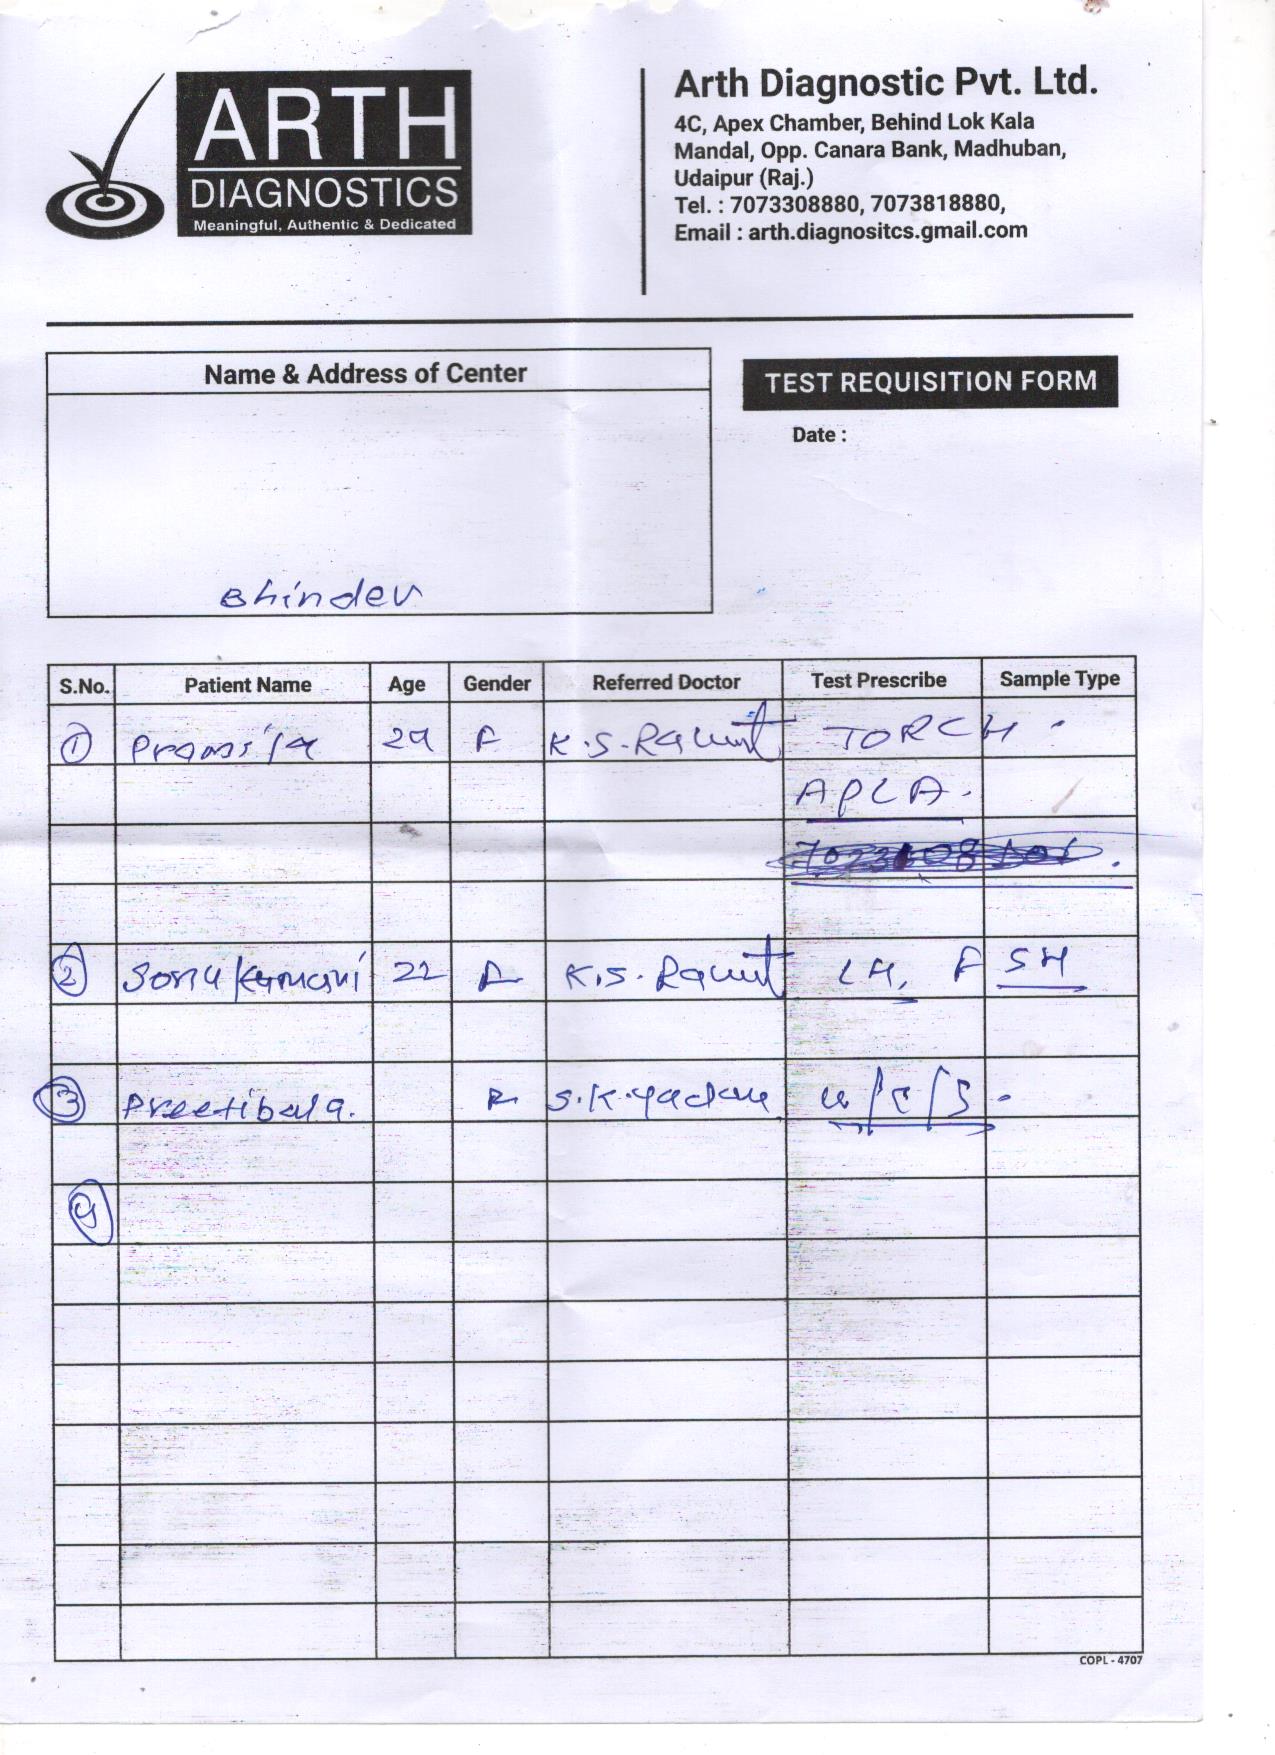 ARTH
DIAGNOSTICS
Meaningful, Authentic & Dedicated
Arth Diagnostic Pvt. Ltd.
4C, Apex Chamber, Behind Lok Kala
Mandal, Opp. Canara Bank, Madhuban,
Udaipur (Raj.)
Tel. : 7073308880, 7073818880,
Email : arth.diagnositcs.gmail.com
Name & Address of Center
TEST REQUISITION FORM
Date :
Bhinder
S.No. Patient Name Age Gender Referred Doctor Test Prescribe Sample Type
1 29 F K.S. TORCH.
APLA.
2 Sonu Kumari 22 F K.S. LH, FSH
3 Preetibala. F S.K. u/c/s.
4
COPL - 4707